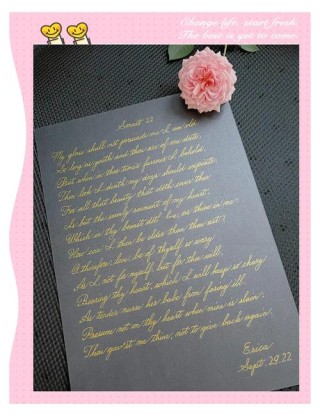 Change life, start fresh.
The best is yet to come.
Sonnet 22
My glass shall not persuade me I am old,
So long as youth and thou are of one date;
But when in thee time's furrows I behold,
Then look I death my days should expiate.
For all that beauty that doth cover thee
Is but the seemly raiment of my heart,
Which in thy breast doth live, as thine in me:
How can I then be elder than thou art?
O therefore, love, be of thyself so wary
As I, not for myself, but for thee will,
Bearing thy heart, which I will keep so chary
As tender nurse her babe from faring ill.
Presume not on thy heart when mine is slain;
Thou gav'st me thine, not to give back again.
Erica
Sept. 29. 22